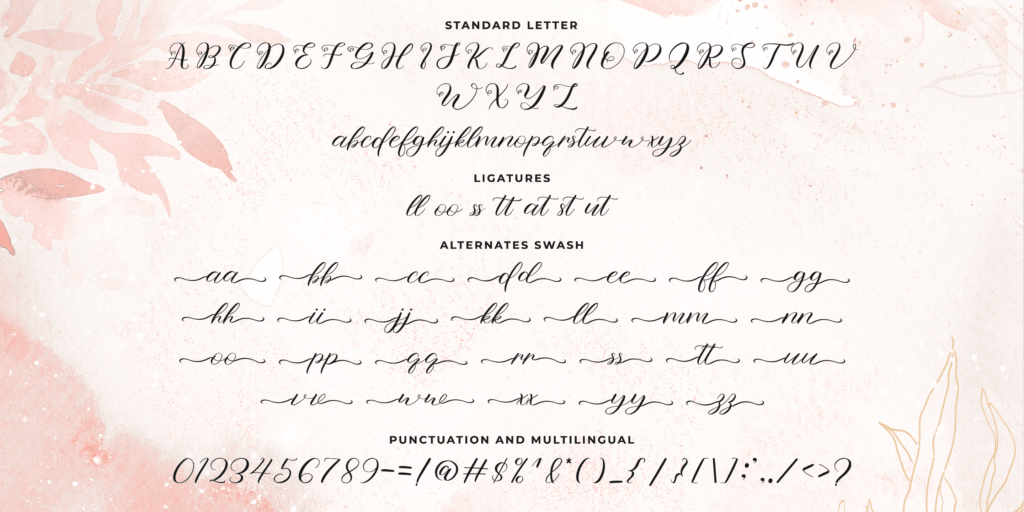 STANDARD LETTER
A B C D E F G H I J K L M N O P Q R S T U V
W X Y Z
abcdefghijklmnopqrstuvwxyz
LIGATURES
ll oo ss tt at st ut
ALTERNATES SWASH
aa bb cc dd ee ff gg
hh ii jj kk ll mm nn
oo pp qq rr ss tt uu
vv ww xx yy zz
PUNCTUATION AND MULTILINGUAL
0123456789-=!@#$%^&*()_{/}[\]:;'.,/<>?